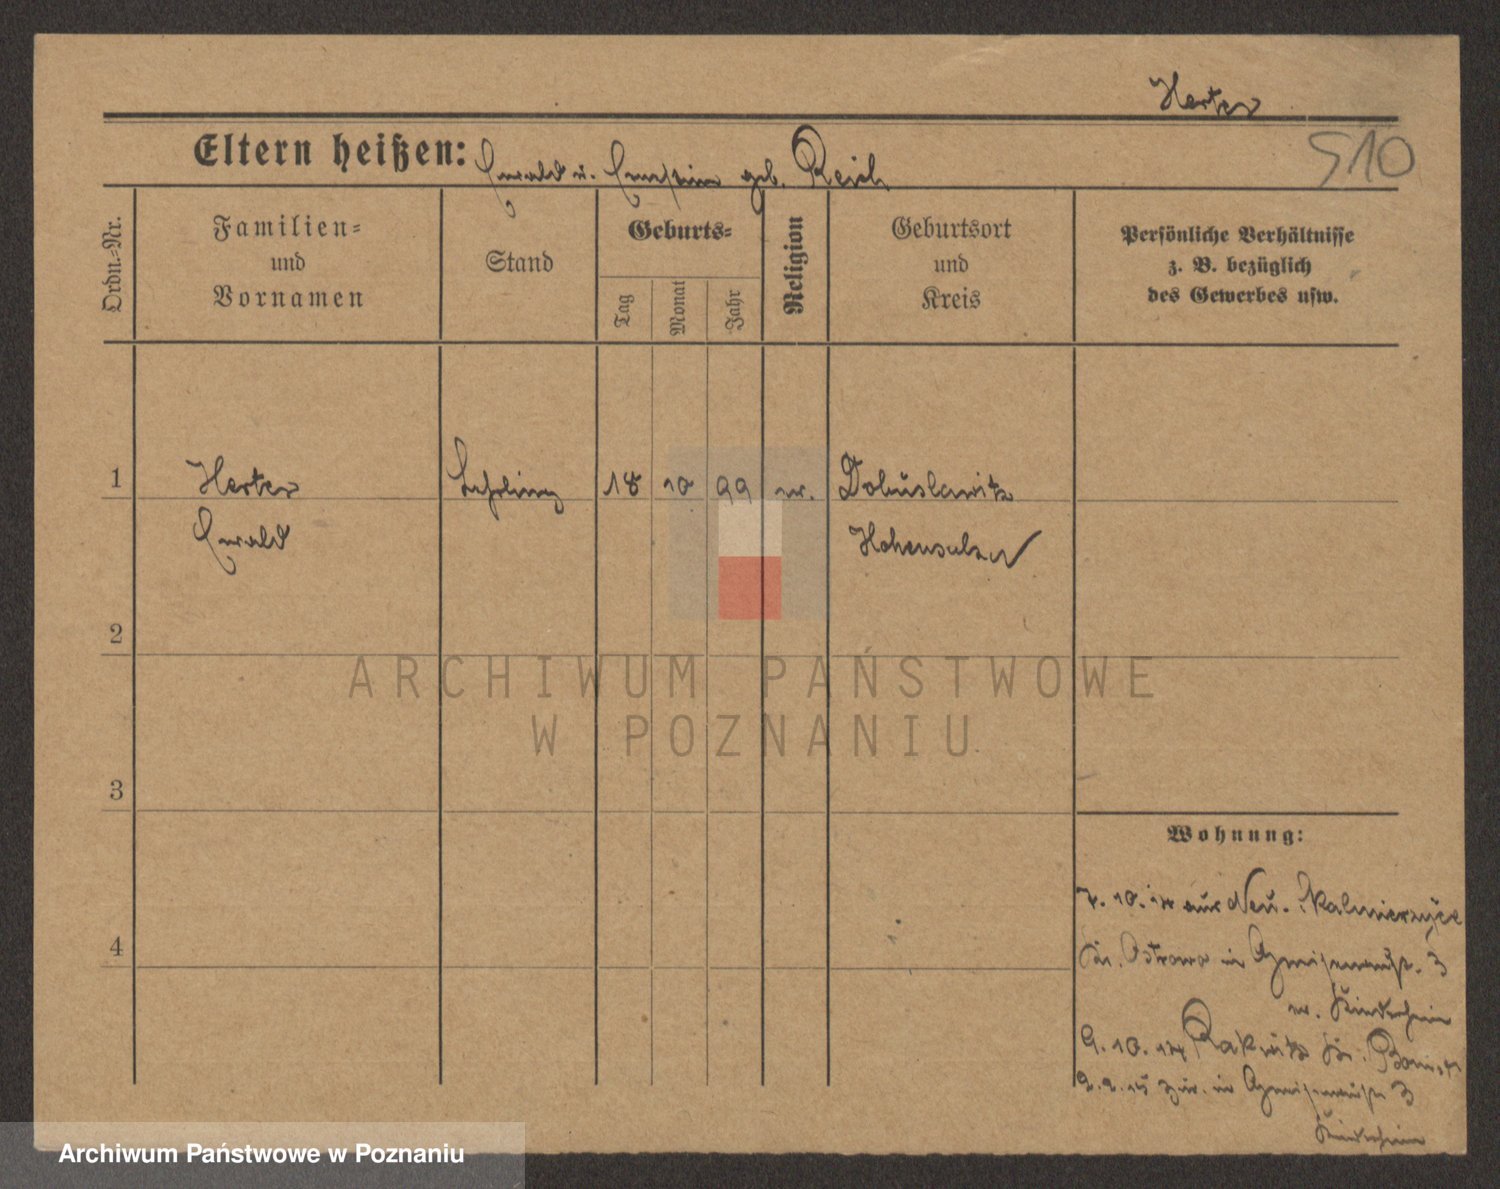 Herter
510
Eltern heißen: Ewald u. Ernestine geb. Reich
Ordn.-Nr.
Familien-
und
Vornamen
Stand
Geburts-
Tag
Monat
Jahr
Religion
Geburtsort
und
Kreis
Persönliche Verhältnisse
z. B. bezüglich
des Gewerbes usw.
1
Herter Lehrling 18 10 99 ev. Dobuslawitz
Ewald Hohensalza
2
3
4
Wohnung:
7. 10. 14 aus Neu. Skalmierzyce
Kr. Ostrowo in Gneisenaustr. 3
ev. Kinderheim
9. 10. 14 Rakwitz Kr. Bomst
2. 2. 15 zur. in Gneisenaustr 3
Kinderheim
ARCHIWUM PAŃSTWOWE
W POZNANIU
Archiwum Państwowe w Poznaniu